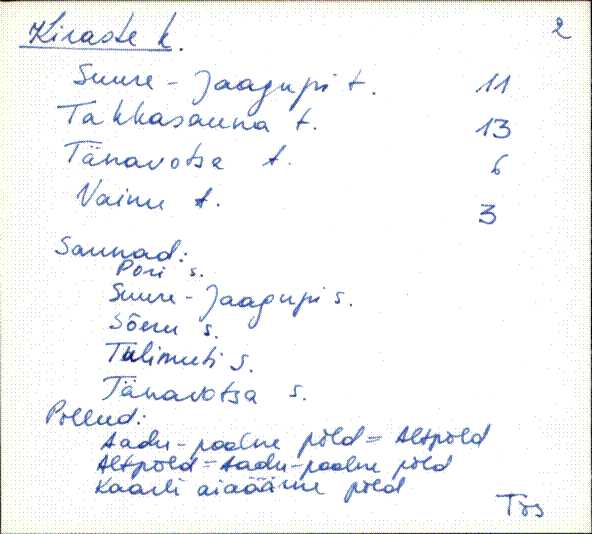 Kiraste k. 2
Suure-Jaagupi t. 11
Takkasauna t. 13
Tänavotsa t. 6
Vainu t. 3
Saunnad:
Pori s.
Suure-Jaagupi s.
Sõeru s.
Tulimuti s.
Tänavotsa s.
Põllud:
Aadu-poolne põld = Altpõld
Altpõld = Aadu-poolne põld
Kaarli aiaäärne põld
Tõs